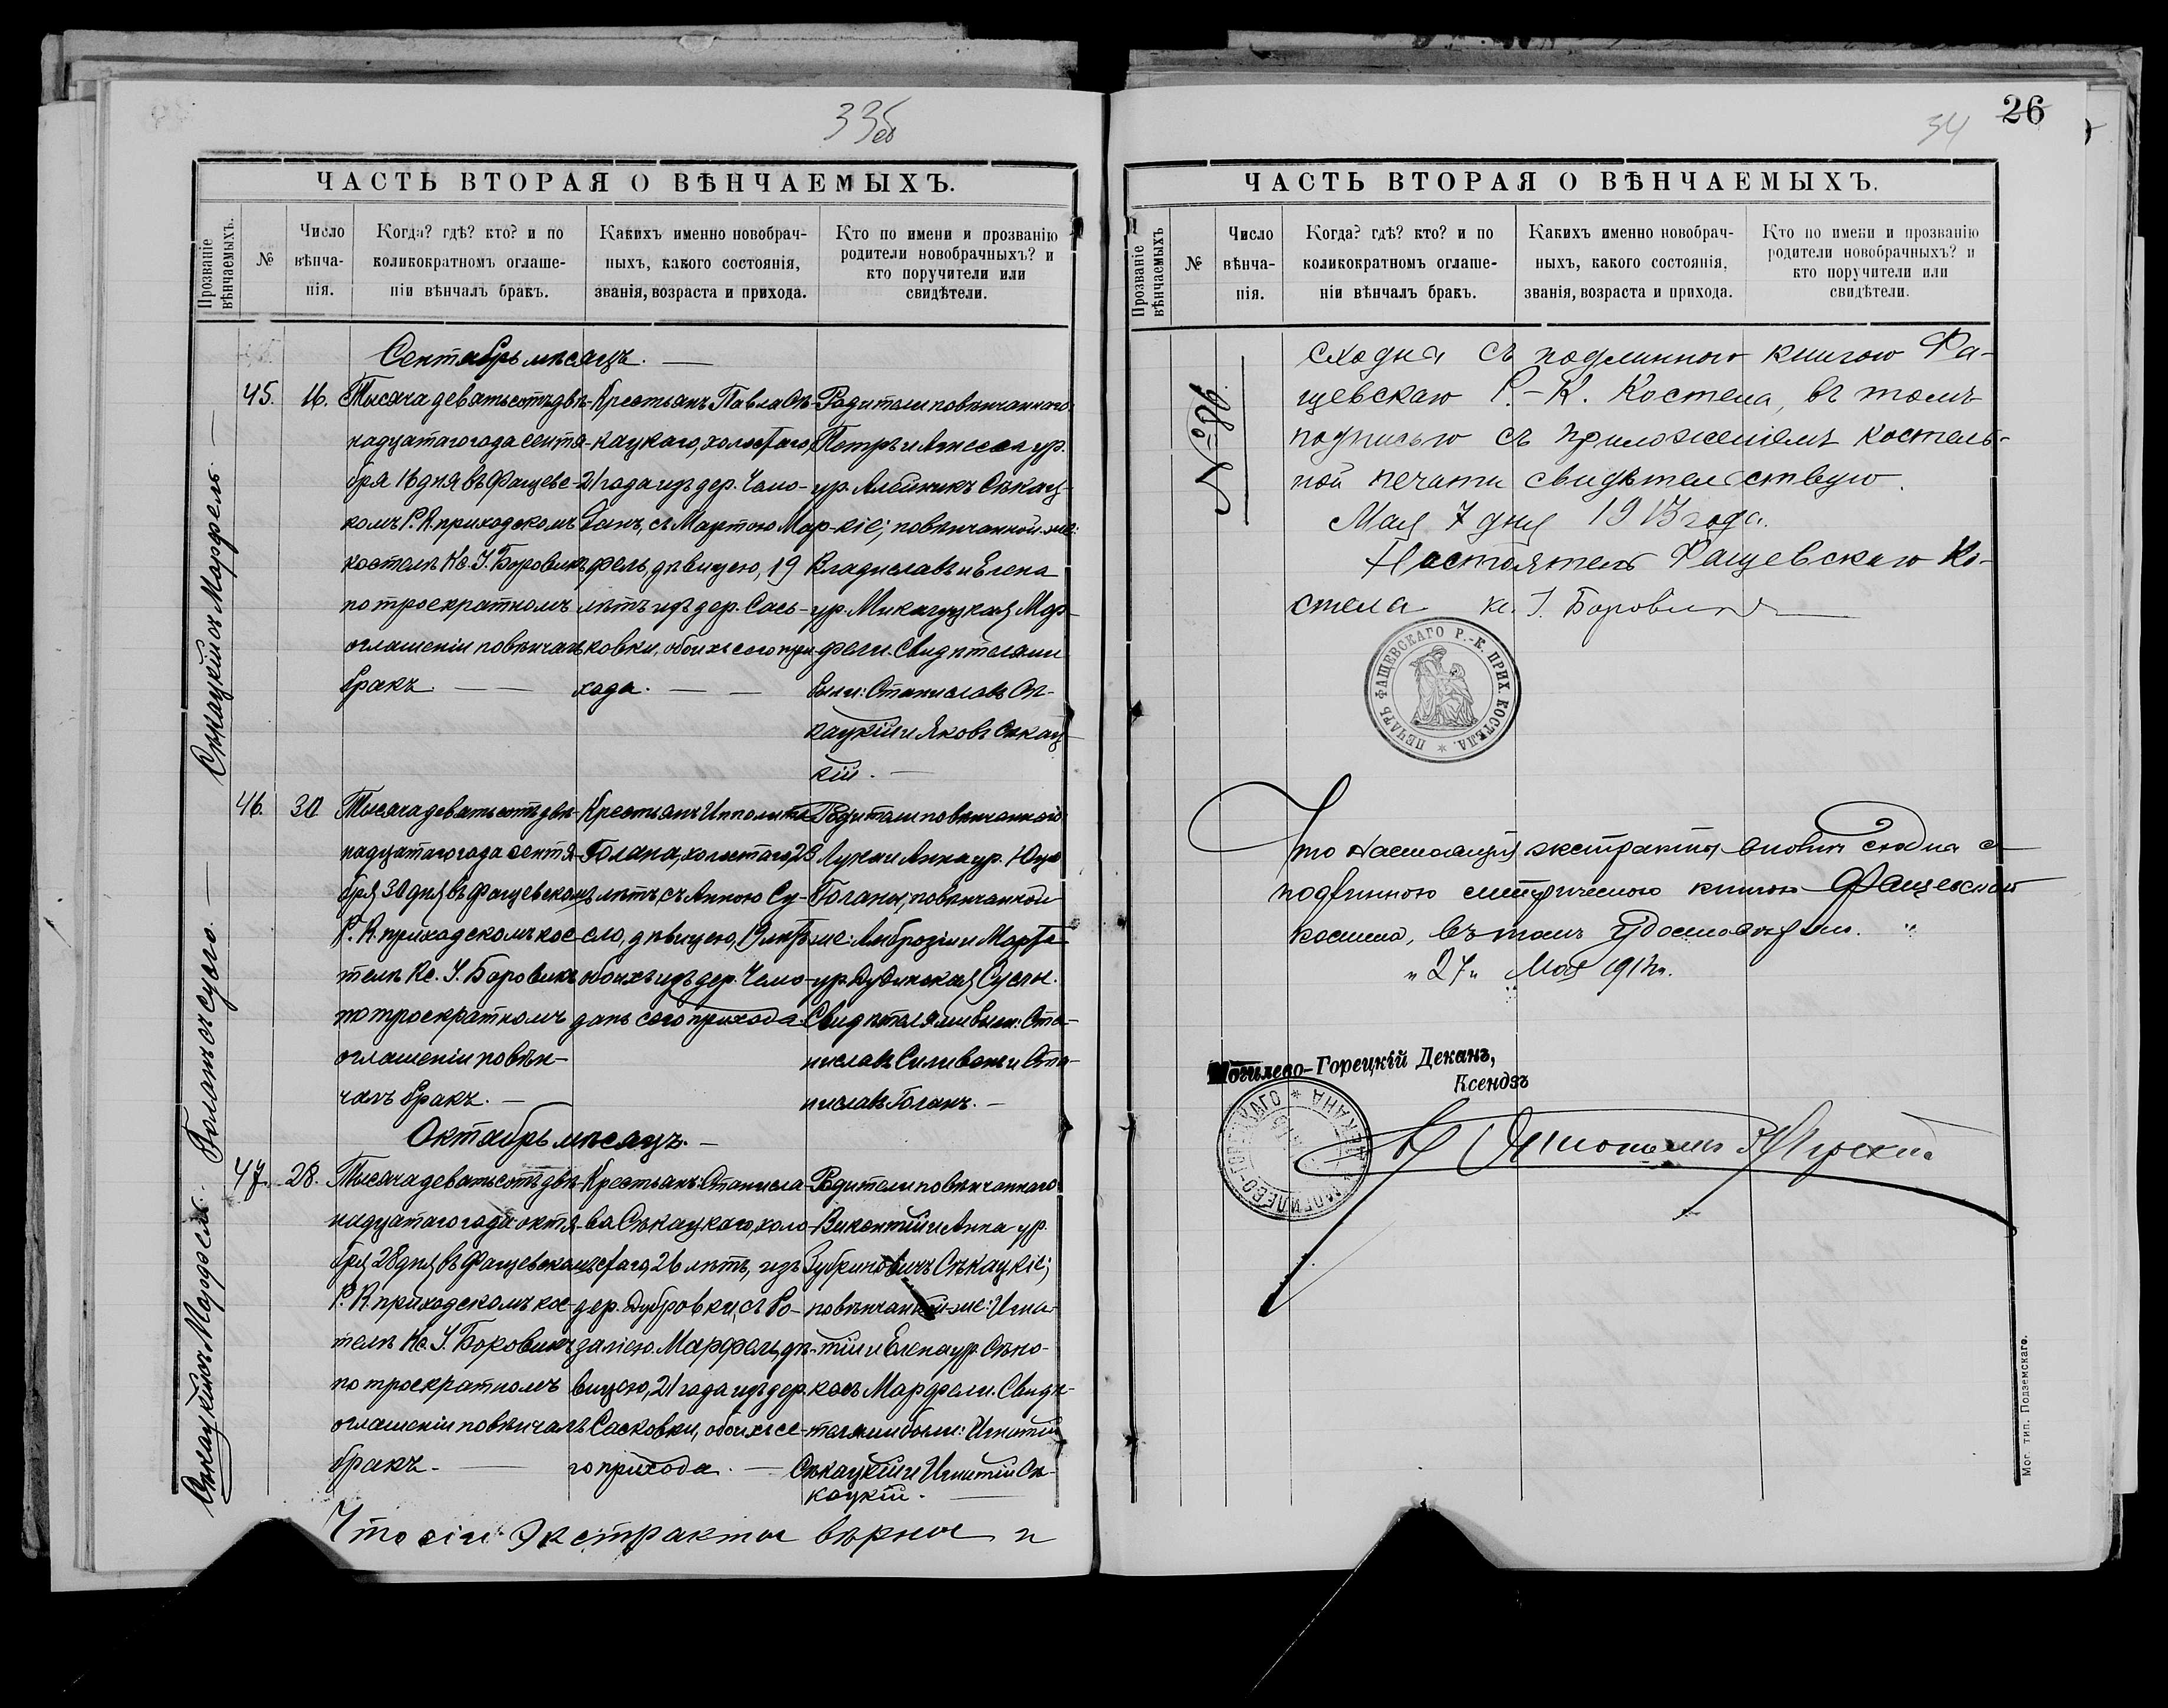 33об
ЧАСТЬ ВТОРАЯ О ВѢНЧАЕМЫХЪ.
Прозваніе вѣнчаемыхъ.
№
Число вѣнча-нія.
Когда? гдѣ? кто? и по
коликократномъ оглаше-
ніи вѣнчалъ бракъ.
Какихъ именно новобрач-
ныхъ, какого состоянія,
званія, возраста и прихода.
Кто по имени и прозванію
родители новобрачныхъ? и
кто поручители или
свидѣтели.
Сентябрь мѣсяцъ. —
Сѣкацкій съ Марфель. —
45.
16.
Тысяча девятьсотъ двѣ-
надцатаго года сентя-
бря 16 дня въ Фащевс-
комъ Р. К. приходскомъ
костелѣ Кс. І. Боровикъ
по троекратномъ
оглашеніи повѣнчалъ
бракъ. —
Крестьянъ Павла Сѣ-
кацкаго, холостаго,
21 года изъ дер. Чамо-
данъ, съ Мартою Мар-
фель, дѣвицею, 19
лѣтъ изъ дер. Сась-
ковки, обоихъ сего при-
хода. —
Родители повѣнчаннаго:
Петръ и Анна
ур. Алейникъ Сѣкац-
кіе; повѣнчанной-же:
Владиславъ и Елена
ур. Мар-
фели. Свидѣтелями
были: Станиславъ Сѣ-
кацкій и Яковъ Сѣкац-
кій. —
Голанъ съ Сусло. —
46.
30
Тысяча девятьсотъ двѣ-
надцатаго года сентя-
бря 30 дня въ Фащевскомъ
Р. К. приходскомъ кос-
телѣ Кс. І. Боровикъ
по троекратномъ
оглашеніи повѣн-
чалъ бракъ. —
Крестьянъ Ипполита
Голана, холостаго, 28
лѣтъ, съ Анною Су-
сло, дѣвицею, 19 лѣтъ
обоихъ изъ дер. Чемо-
данъ сего прихода.
Родители повѣнчаннаго
Лука и Анна ур.
Голаны; повѣнчанной
же: Амброзій и Марта
ур. Дудинская Суслы.
Свидѣтелями были: Ста-
ниславъ Силивонъ и Ста-
ниславъ Голанъ. —
Октябрь мѣсяцъ. —
Сѣкацкій съ Марфель.
47.
28.
Тысяча девятьсотъ двѣ-
надцатаго года октя-
бря 28 дня въ Фащевскомъ
Р. К. приходскомъ кос-
телѣ Кс. І. Боровикъ
по троекратномъ
оглашеніи повѣнчалъ
бракъ. —
Крестьянъ: Станисла-
ва Сѣкацкаго, холо-
стаго, 26 лѣтъ, изъ
дер. Дубровки, съ Ро-
заліею Марфель, дѣ-
вицею, 21 года изъ дер.
Сасковки, обоихъ се-
го прихода. —
Родители повѣнчаннаго
Викентій и Анна ур.
Зубриновичъ Сѣкацкіе;
повѣнчанной-же: Игна-
тій и Елена ур. Сѣно-
косъ Марфели. Свидѣ-
телями были: Игнатій
Сѣкацкій и Игнатій Сѣ-
кацкій. —
Что сіи экстракты вѣрны и
26
34
ЧАСТЬ ВТОРАЯ О ВѢНЧАЕМЫХЪ.
Прозваніе вѣнчаемыхъ
№
Число вѣнча-нія.
Когда? гдѣ? кто? и по
коликократномъ оглаше-
ніи вѣнчалъ бракъ.
Какихъ именно новобрач-
ныхъ, какого состоянія,
званія, возраста и прихода.
Кто по имени и прозванію
родители новобрачныхъ? и
кто поручители или
свидѣтели.
сходны съ подлинною книгою Фа-
щевскаго Р.-К. Костела, въ томъ
подписью съ приложеніемъ костель-
ной печати свидѣтельствую.
Мая 7 дня 1913 года.
Настоятель Фащевскаго Ко-
стела кс. І. Боровикъ
ПЕЧАТЬ ФАЩЕВСКАГО Р.-К. ПРИХ. КОСТЕЛА. *
Что настоящій экстрактъ сходна съ
подлинною метрическою книгою Фащевскаго
костела, въ томъ удостовѣряю.
„27„ Мая 1913 г.
Могилево-Горецкій Деканъ,
Ксендзъ
МОГИЛЕВО-ГОРЕЦКАГО * ДЕКАНА
Мог. тип. Подземскаго.